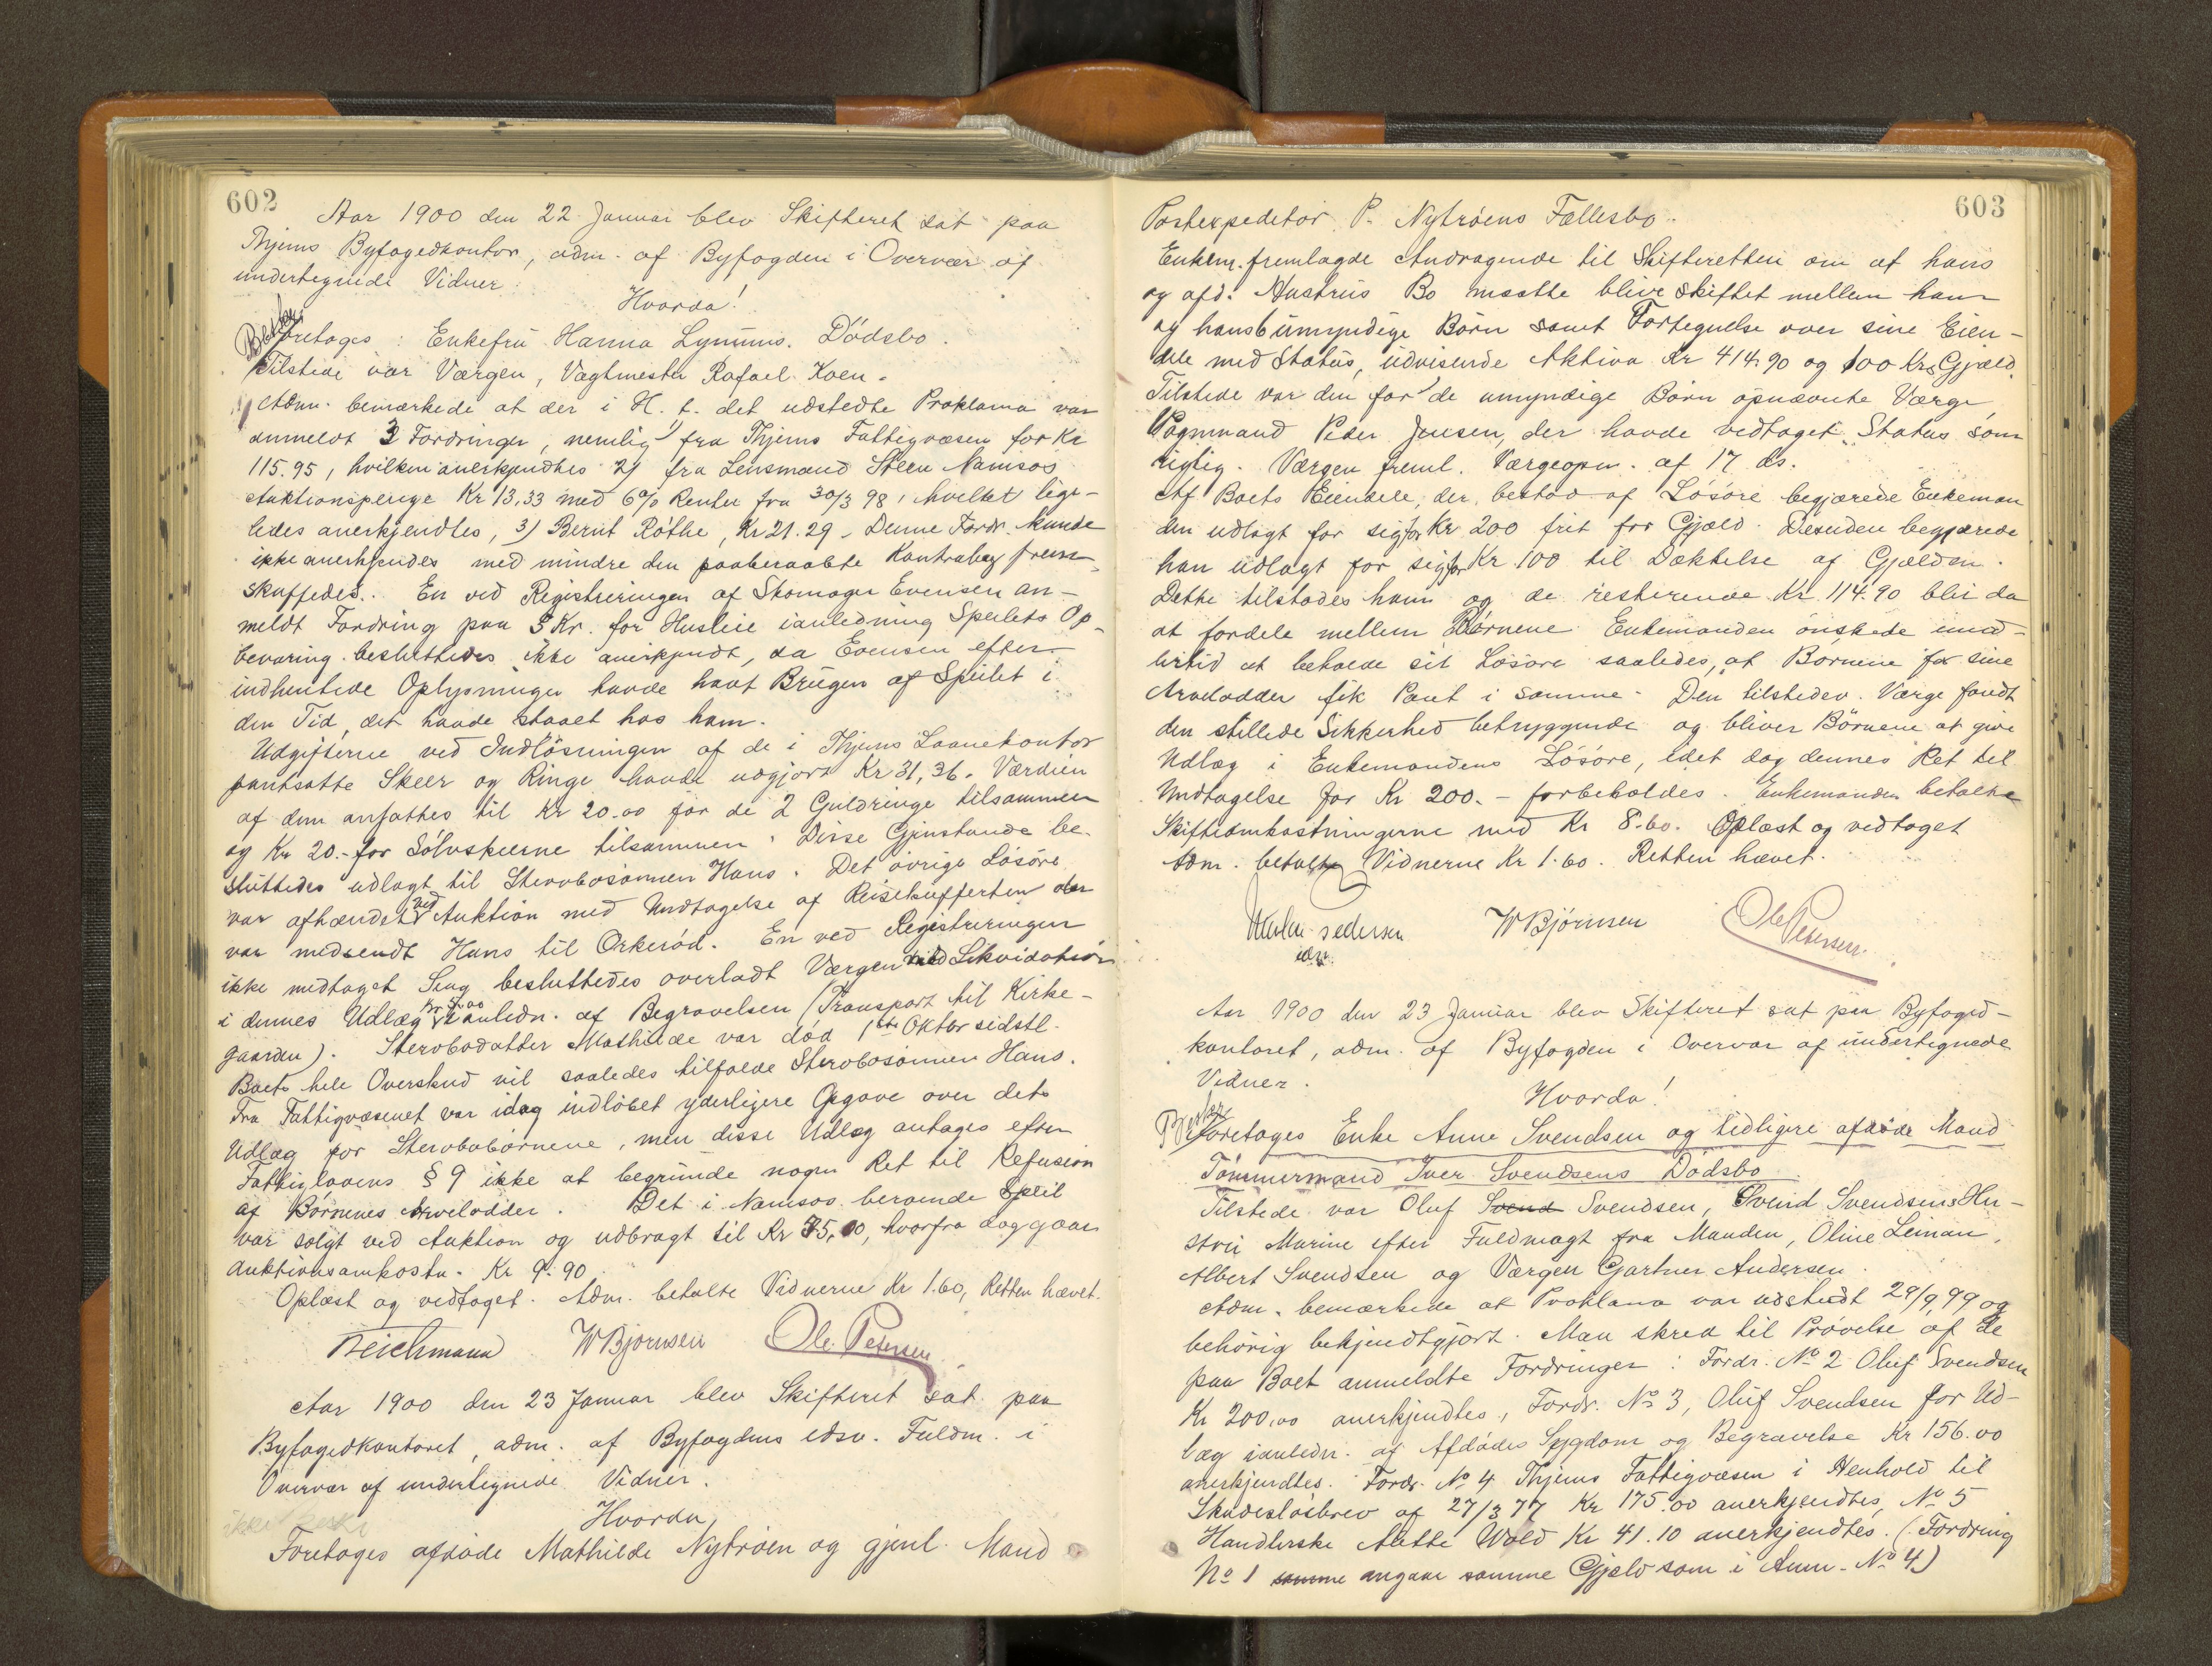 602
Aar 1900 den 22 Januar blev Skifteret sat paa
Thjems Byfogedkontor, adm. af Byfogden i Overvær af
undertegnede Vidner.
Hvorda!
Foretoges: Enkefru Hanna Lynums. Dödsbo.
Tilstede var Værgen, Vagtmester Rafael Koen.
Adm. bemærkede at der i H. t. det udstedte Proklama var
anmeldt 3 Fordringer, nemlig 1) fra Thjems Fattigvæsen for Kr
115.95, hvilken anerkjendtes 2) fra Lensmand Steen Namsos
Auktionspenge Kr 13,33 med 6% Renter fra 30/3 98, hvilket lige-
ledes anerkjendtes, 3) Bernt Röthe, Kr 21.29 - Denne Fordr. kunde
ikke anerkjendes med mindre den paaberaabte Kontrabog frem-
skaffedes. En ved Registreringen af Skomager Evensen an-
meldt Fordring paa 5 Kr. for Husleie ianledning Speilets Op-
bevaring besluttedes ikke anerkjendt, da Evensen efter
indhentede Oplysninger havde havt Brugen af Speilet i
den Tid, det havde staaet hos ham.
Udgifterne ved Indlösningen af de i Thjems Laanekontor
pantsatte Skeer og Ringe havde udgjort Kr 31,36. Værdien
af dem ansattes til Kr 20.00 for de 2 Guldringe tilsammen
og Kr 20.- for Sölvskeerne tilsammen. Disse Gjenstande be-
sluttedes udlagt til Stervbosönnen Hans. Det övrige Lösöre
var afhændet ved Auktion med Undtagelse af Reisekufferten der
var medsendt Hans til Orkeröd. En ved Registreringen
ikke medtaget Seng besluttedes overladt Værgen ved Likvidation
i dennes Udlæg Kr 5.00 ianledn. af Begravelsen (Transport til Kirke-
gaarden). Stervbodatter Mathilde var död 1ste Oktbr sidstl.
Boets hele Overskud vil saaledes tilfalde Stervbosönnen Hans.
Fra Fattigvæsenet var idag indlöbet yderligere Opgave over dets
Udlæg for Stervbobörnene, men disse Udlæg antages efter
Fattiglovens § 9 ikke at begrunde nogen Ret til Refusion
af Börnenes Arvelodder. Det i Namsos beroende Speil
var solgt ved Auktion og udbragt til Kr 35,00, hvorfra dog gaar
Auktionsomkostn. Kr 9.90
Oplæst og vedtaget. Adm. betalte Vidnerne Kr 1.60, Retten hævet.
Reichmann W Bjørnsen Ole Petersen
Aar 1900 den 23 Januar blev Skifteret sat paa
Byfogedkontoret, adm. af Byfogdens edsv. Fuldm. i
Overvær af undertegnede Vidner.
Hvorda,
Foretoges afdöde Mathilde Nytröen og gjenl. Mand
603
Postexpeditör P. Nytröens Fællesbo.
Enkem. fremlagde Andragende til Skifteretten om at hans
og afd. Hustrus Bo maatte blive skiftet mellem ham
og hans 6 umyndige Börn samt Fortegnelse over sine Eien-
dele med Status, udvisende Aktiva Kr 414.90 og 100 Kr Gjæld.
Tilstede var den for de umyndige Börn opnævnte Værge
Vognmand Peder Jensen, der havde vedtaget Status som
rigtig. Værgen freml. Værgeopn. af 17 ds.
Af Boets Eiendele, der bestod af Lösöre begjærede Enkeman
den udlagt for sig for Kr 200 frit for Gjæld. Desuden begjærede
han udlagt for sig for Kr 100 til Dækkelse af Gjælden.
Dette tilstodes ham og de resterende Kr 114.90 blir da
at fordele mellem Börnene. Enkemanden önskede imid-
lertid at beholde sit Lösöre saaledes, at Börnene for sine
Arvelodder fik Pant i samme. Den tilstedev. Værge fandt
den stillede Sikkerhed betryggende og bliver Börnene at give
Udlæg i Enkemandens Lösöre, idet dog dennes Ret til
Undtagelse for Kr 200.- forbeholdes. Enkemanden betalte
Skifteomkostningerne med Kr 8.60. Oplæst og vedtaget
Adm. betalte Vidnerne Kr 1.60. Retten hævet.
W Bjørnsen Ole Petersen
Aar 1900 den 23 Januar blev Skifteret sat paa Byfoged-
kontoret, adm. af Byfogden i Overvær af undertegnede
Vidner.
Hvorda!
Foretoges Enke Anne Svendsen og tidligere afdöde Mand
Tömmermand Iver Svendsens Dödsbo
Tilstede var Oluf Svend Svendsen, Svend Svendsens Hu-
stru Marine efter Fuldmagt fra Manden, Oline Leinan,
Albert Svendsen og Værgen Gartner Andersen.
Adm. bemærkede at Proklama var udstedt 29/9 99 og
behörig bekjendtgjort. Man skred til Prövelse af de
paa Boet anmeldte Fordringer: Fordr. No 2 Oluf Svendsen
Kr 200.00 anerkjendtes, Fordr. No 3, Oluf Svendsen for Ud-
læg ianledn. af Afdödes Sygdom og Begravelse Kr 156.00
anerkjendtes. Fordr. No 4 Thjems Fattigvæsen i Henhold til
Skadeslösbrev af 27/3 77 Kr 175.00 anerkjendtes, No 5
Handlerske Aette Wold Kr 41.10 anerkjendtes. (Fordring
No 1 samme angaar samme Gjæld som i Anm. No 4)